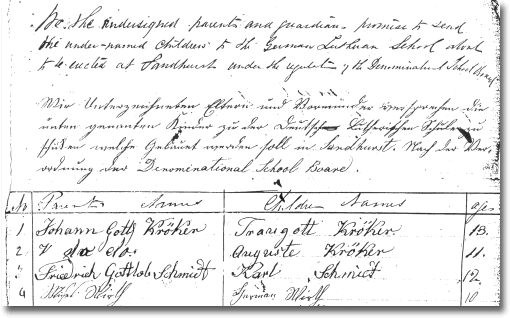 We the undersigned parents and guardians promise to send
the under-named children to the German Lutheran School about
to be erected at Sandhurst under the regulations of the Denominational School Board
Wir Unterzeichneten Eltern und Vormünder versprechen die
unten genanten Kinder zu der Deutsch Lutherischen Schule zu
schicken welche Gebäuet werden soll in Sandhurst. Nach der Ver-
ordnung der Denominational School Board.
No Parents Names Children Names ages
1 Johann Gottf Kröker Traugott Kröker 13.
2. do do. Auguste Kröker 11.
3 Friedrich Gottlob Schmidt Karl Schmidt 12.
4 Wirth Herman Wirth 10